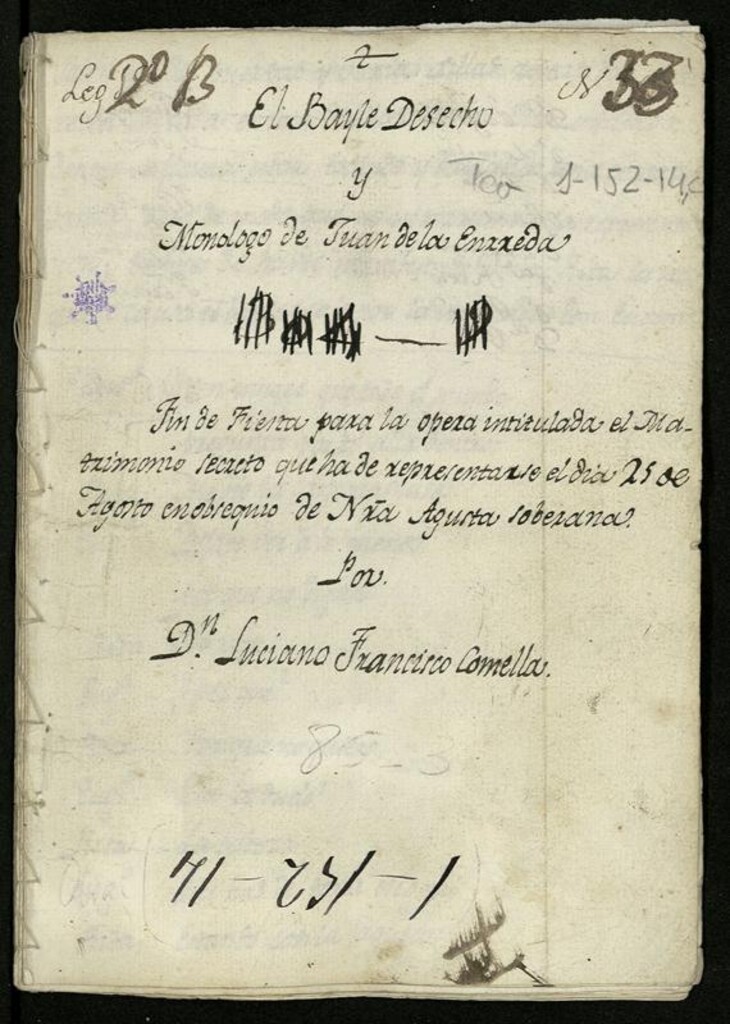 Leg 2º B
N 33
El Bayle Desecho
y
Teo 1-152-14,
Monologo de Juan de la Enrreda
Fin de Fiesta para la opera intitulada el Ma-
trimonio secreto que ha de representarse el dia 25 de
Agosto en obsequio de Nrã Agusta soberana.
Por.
Dn. Luciano Francisco Comella.
85-3
71-231-1